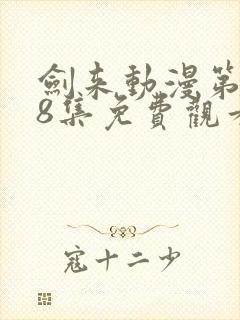 劍来動漫第
8集免費觀
寇十二少